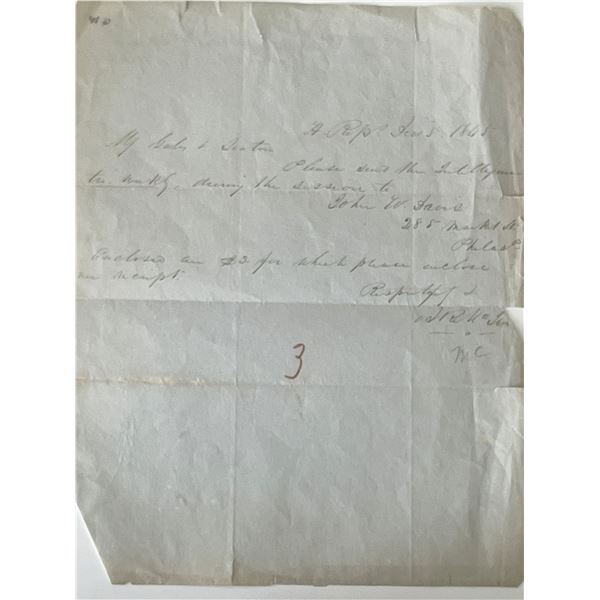 H Rep. 5 1845
Gales & Seaton
Please send the Intelligen
tri weekly, during the session to
John W. Davis
285 Market St
Philada
Enclosed are $3 for which please enclose
me receipt.
Respectfly
M C
3